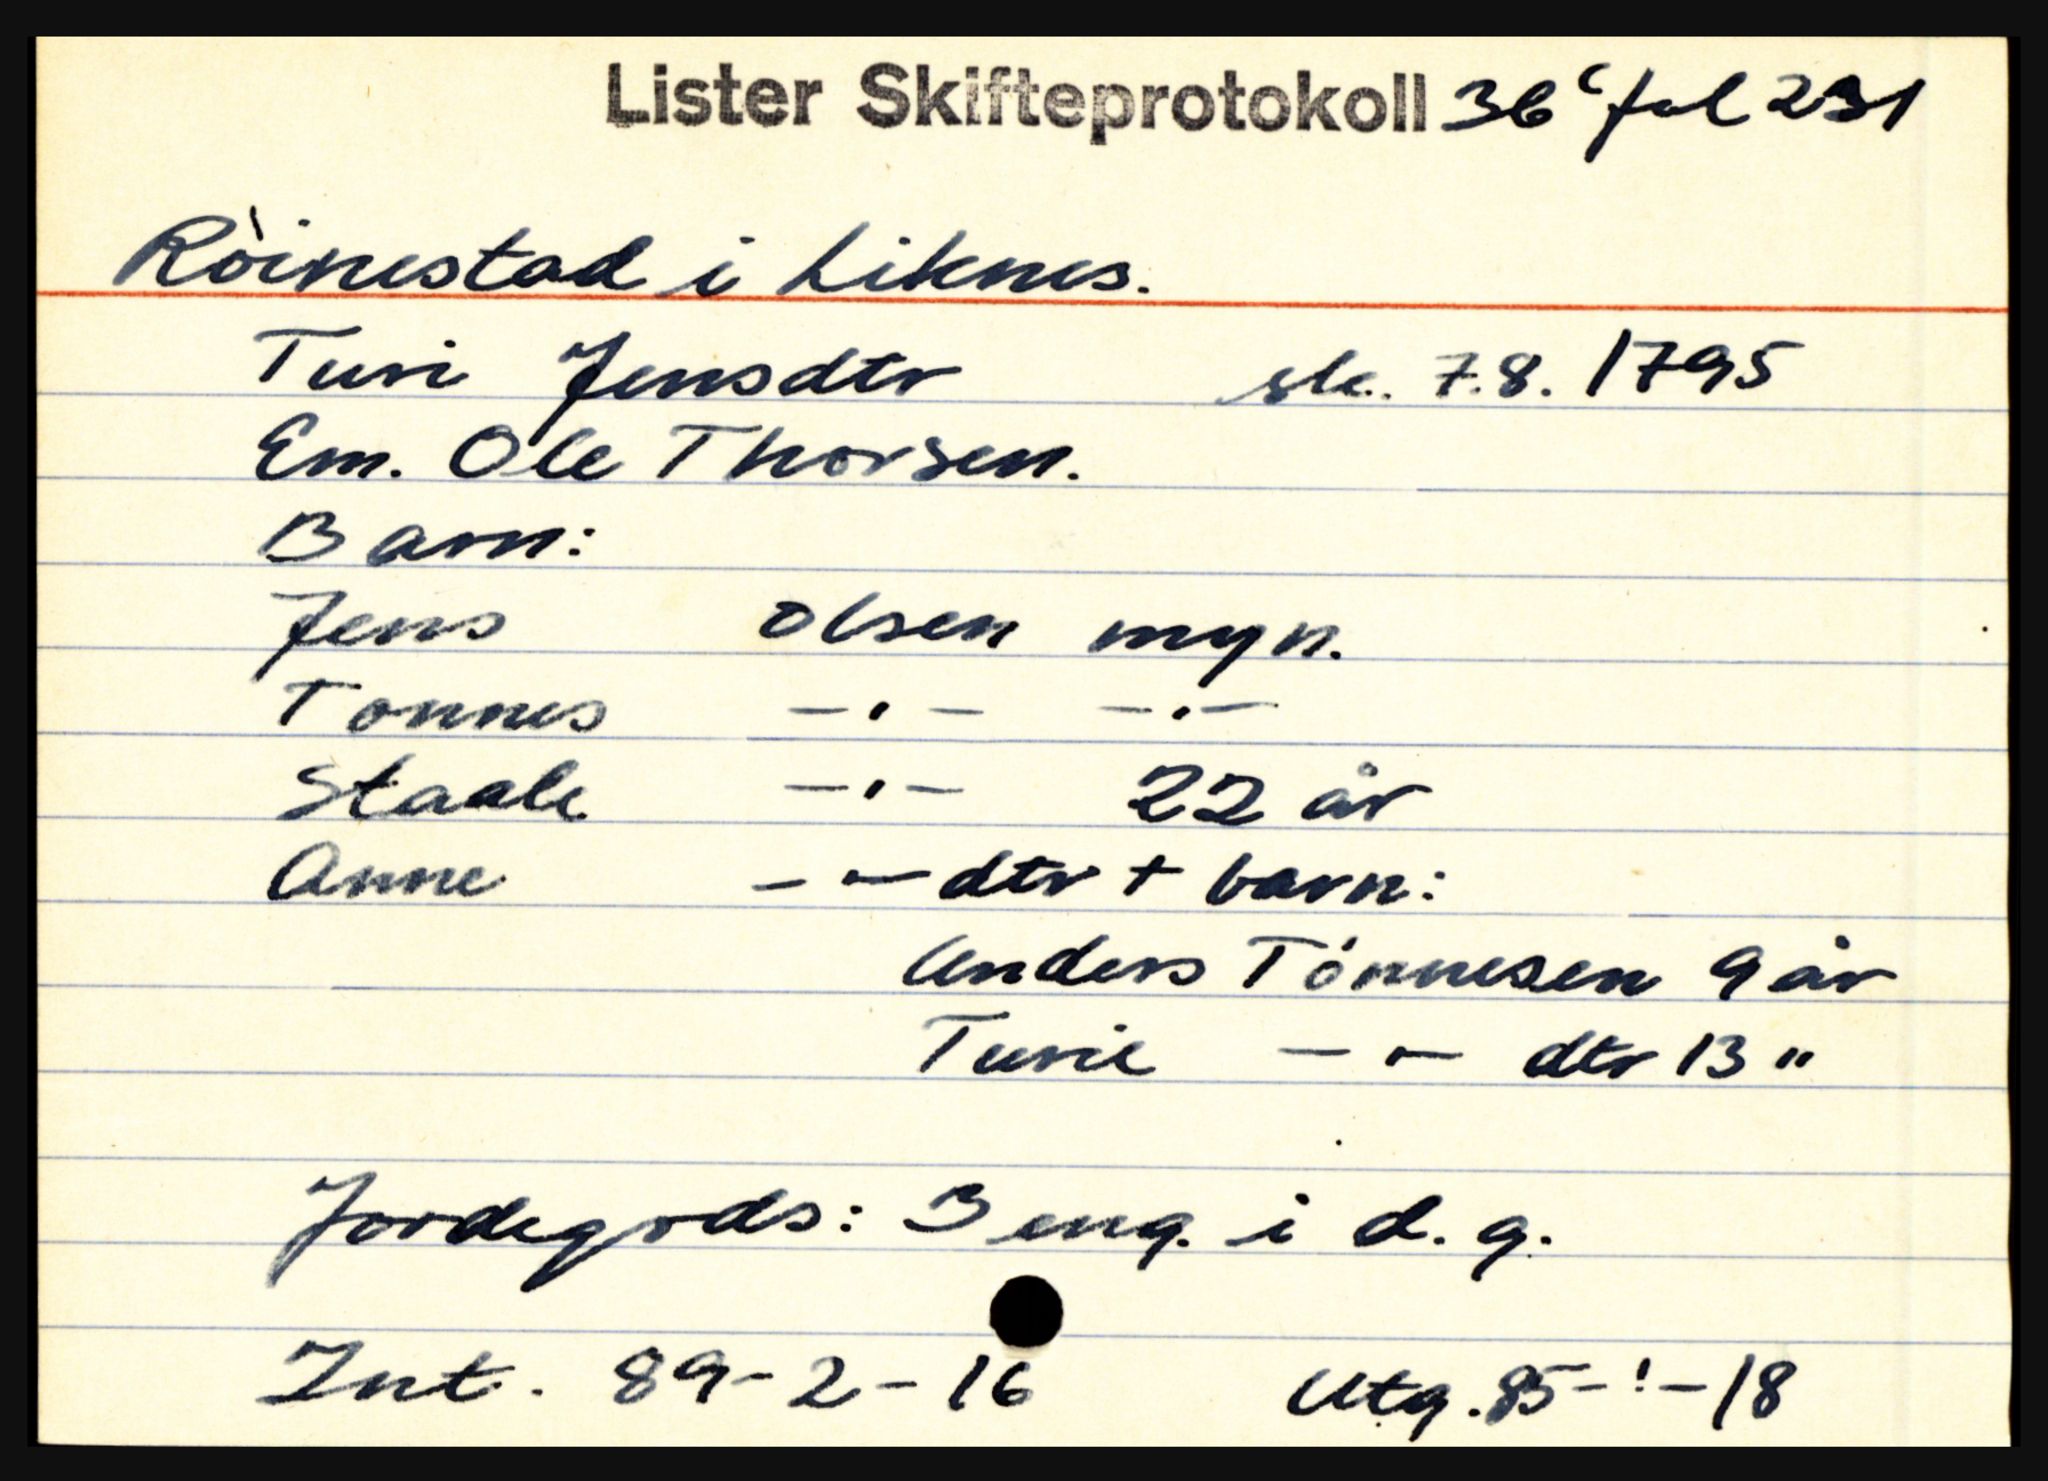 Lister Skifteprotokoll 36c fol 231
Röinestad i Liknes.
Turi Jensdtr sk. 7.8. 1795
Em. Ole Thorsen.
Barn:
Jens Olsen myn.
Tonnes -"- -"-
Staale -"- 22 år
Anne -"- dtr + barn:
Anders Tönnesen 9 år
Turie -"- dtr 13 "
Jordegods: 3 eng. i d. g.
Int. 89-2-16 Utg. 85-1-18